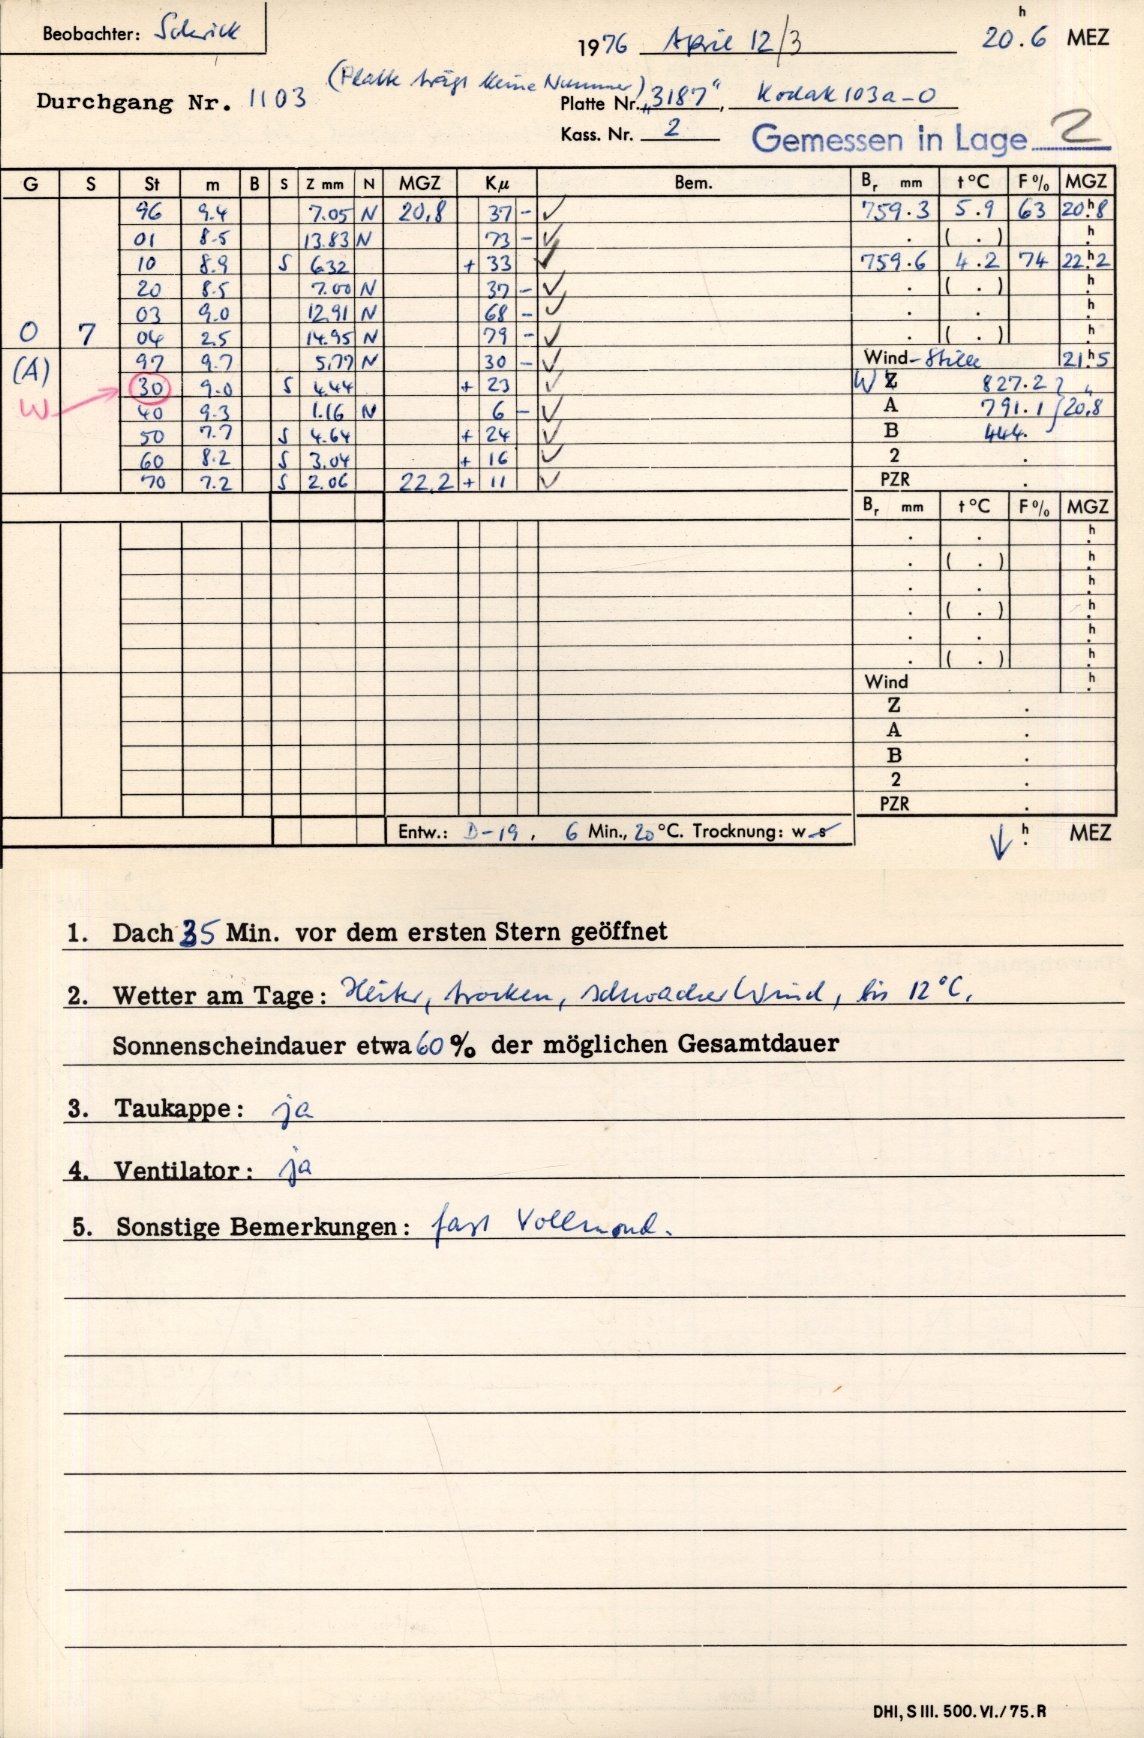 Beobachter: Schrick
1976 April 12/3 20h.6 MEZ
(Platte trägt keine Nummer)
Durchgang Nr. 1103 Platte Nr. „3187“, Kodak 103a-O
Kass. Nr. 2 Gemessen in Lage 2
G S St m B S Z mm N MGZ Kμ Bem. Br mm t°C F% MGZ
96 9.4 7.05 N 20,8 37 - ✓ 759.3 5.9 63 20h.8
01 8.5 13.83 N 73 - ✓ . ( . ) h.
10 8.9 S 6.32 + 33 ✓ 759.6 4.2 74 22h.2
20 8.5 7.00 N 37 - ✓ . ( . ) h.
03 9.0 12.91 N 68 - ✓ . . h.
0 7 04 2.5 14.95 N 79 - ✓ . ( . ) h.
(A) 97 9.7 5.77 N 30 - ✓ Wind - Stille 21h.5
30 9.0 S 4.44 + 23 ✓ W Z 827.2 } „
W 40 9.3 1.16 N 6 - ✓ A 791.1 } 20,8
50 7.7 S 4.64 + 24 ✓ B 444.
60 8.2 S 3.04 + 16 ✓ 2 .
70 7.2 S 2.06 22,2 + 11 ✓ PZR .
Br mm t°C F% MGZ
. . h.
. ( . ) h.
. . h.
. ( . ) h.
. . h.
. ( . ) h.
Wind h.
Z .
A .
B .
2 .
PZR .
Entw.: D-19, 6 Min., 20 °C. Trocknung: w s
↓ h. MEZ
1. Dach 35 Min. vor dem ersten Stern geöffnet
2. Wetter am Tage: Heiter, trocken, schwacher Wind, bis 12°C,
Sonnenscheindauer etwa 60 % der möglichen Gesamtdauer
3. Taukappe: ja
4. Ventilator: ja
5. Sonstige Bemerkungen: fast Vollmond.
DHI, S III. 500. VI./75. R